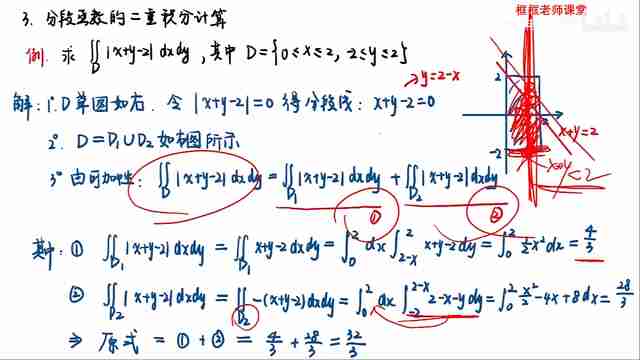 框框老师课堂
3. 分段函数的二重积分计算
例. 求 ∬_D |x+y-2| dxdy , 其中 D={0≤x≤2, -2≤y≤2}
→ y=2-x
解: 1°. D草图如右. 令 |x+y-2|=0 得分段线: x+y-2=0
2°. D=D₁∪D₂ 如右图所示
3° 由可加性: ∬_D |x+y-2| dxdy = ∬_{D₁} |x+y-2| dxdy + ∬_{D₂} |x+y-2| dxdy
① ②
其中: ① ∬_{D₁} |x+y-2| dxdy = ∬_{D₁} x+y-2 dxdy = ∫_0^2 dx ∫_{2-x}^2 x+y-2 dy = ∫_0^2 ½x² dx = 4/3
② ∬_{D₂} |x+y-2| dxdy = ∬_{D₂} -(x+y-2) dxdy = ∫_0^2 dx ∫_{-2}^{2-x} 2-x-y dy = ∫_0^2 x²/2 -4x+8 dx = 28/3
⇒ 原式 = ① + ② = 4/3 + 28/3 = 32/3
2
2
-2
x+y=2
x+y<2